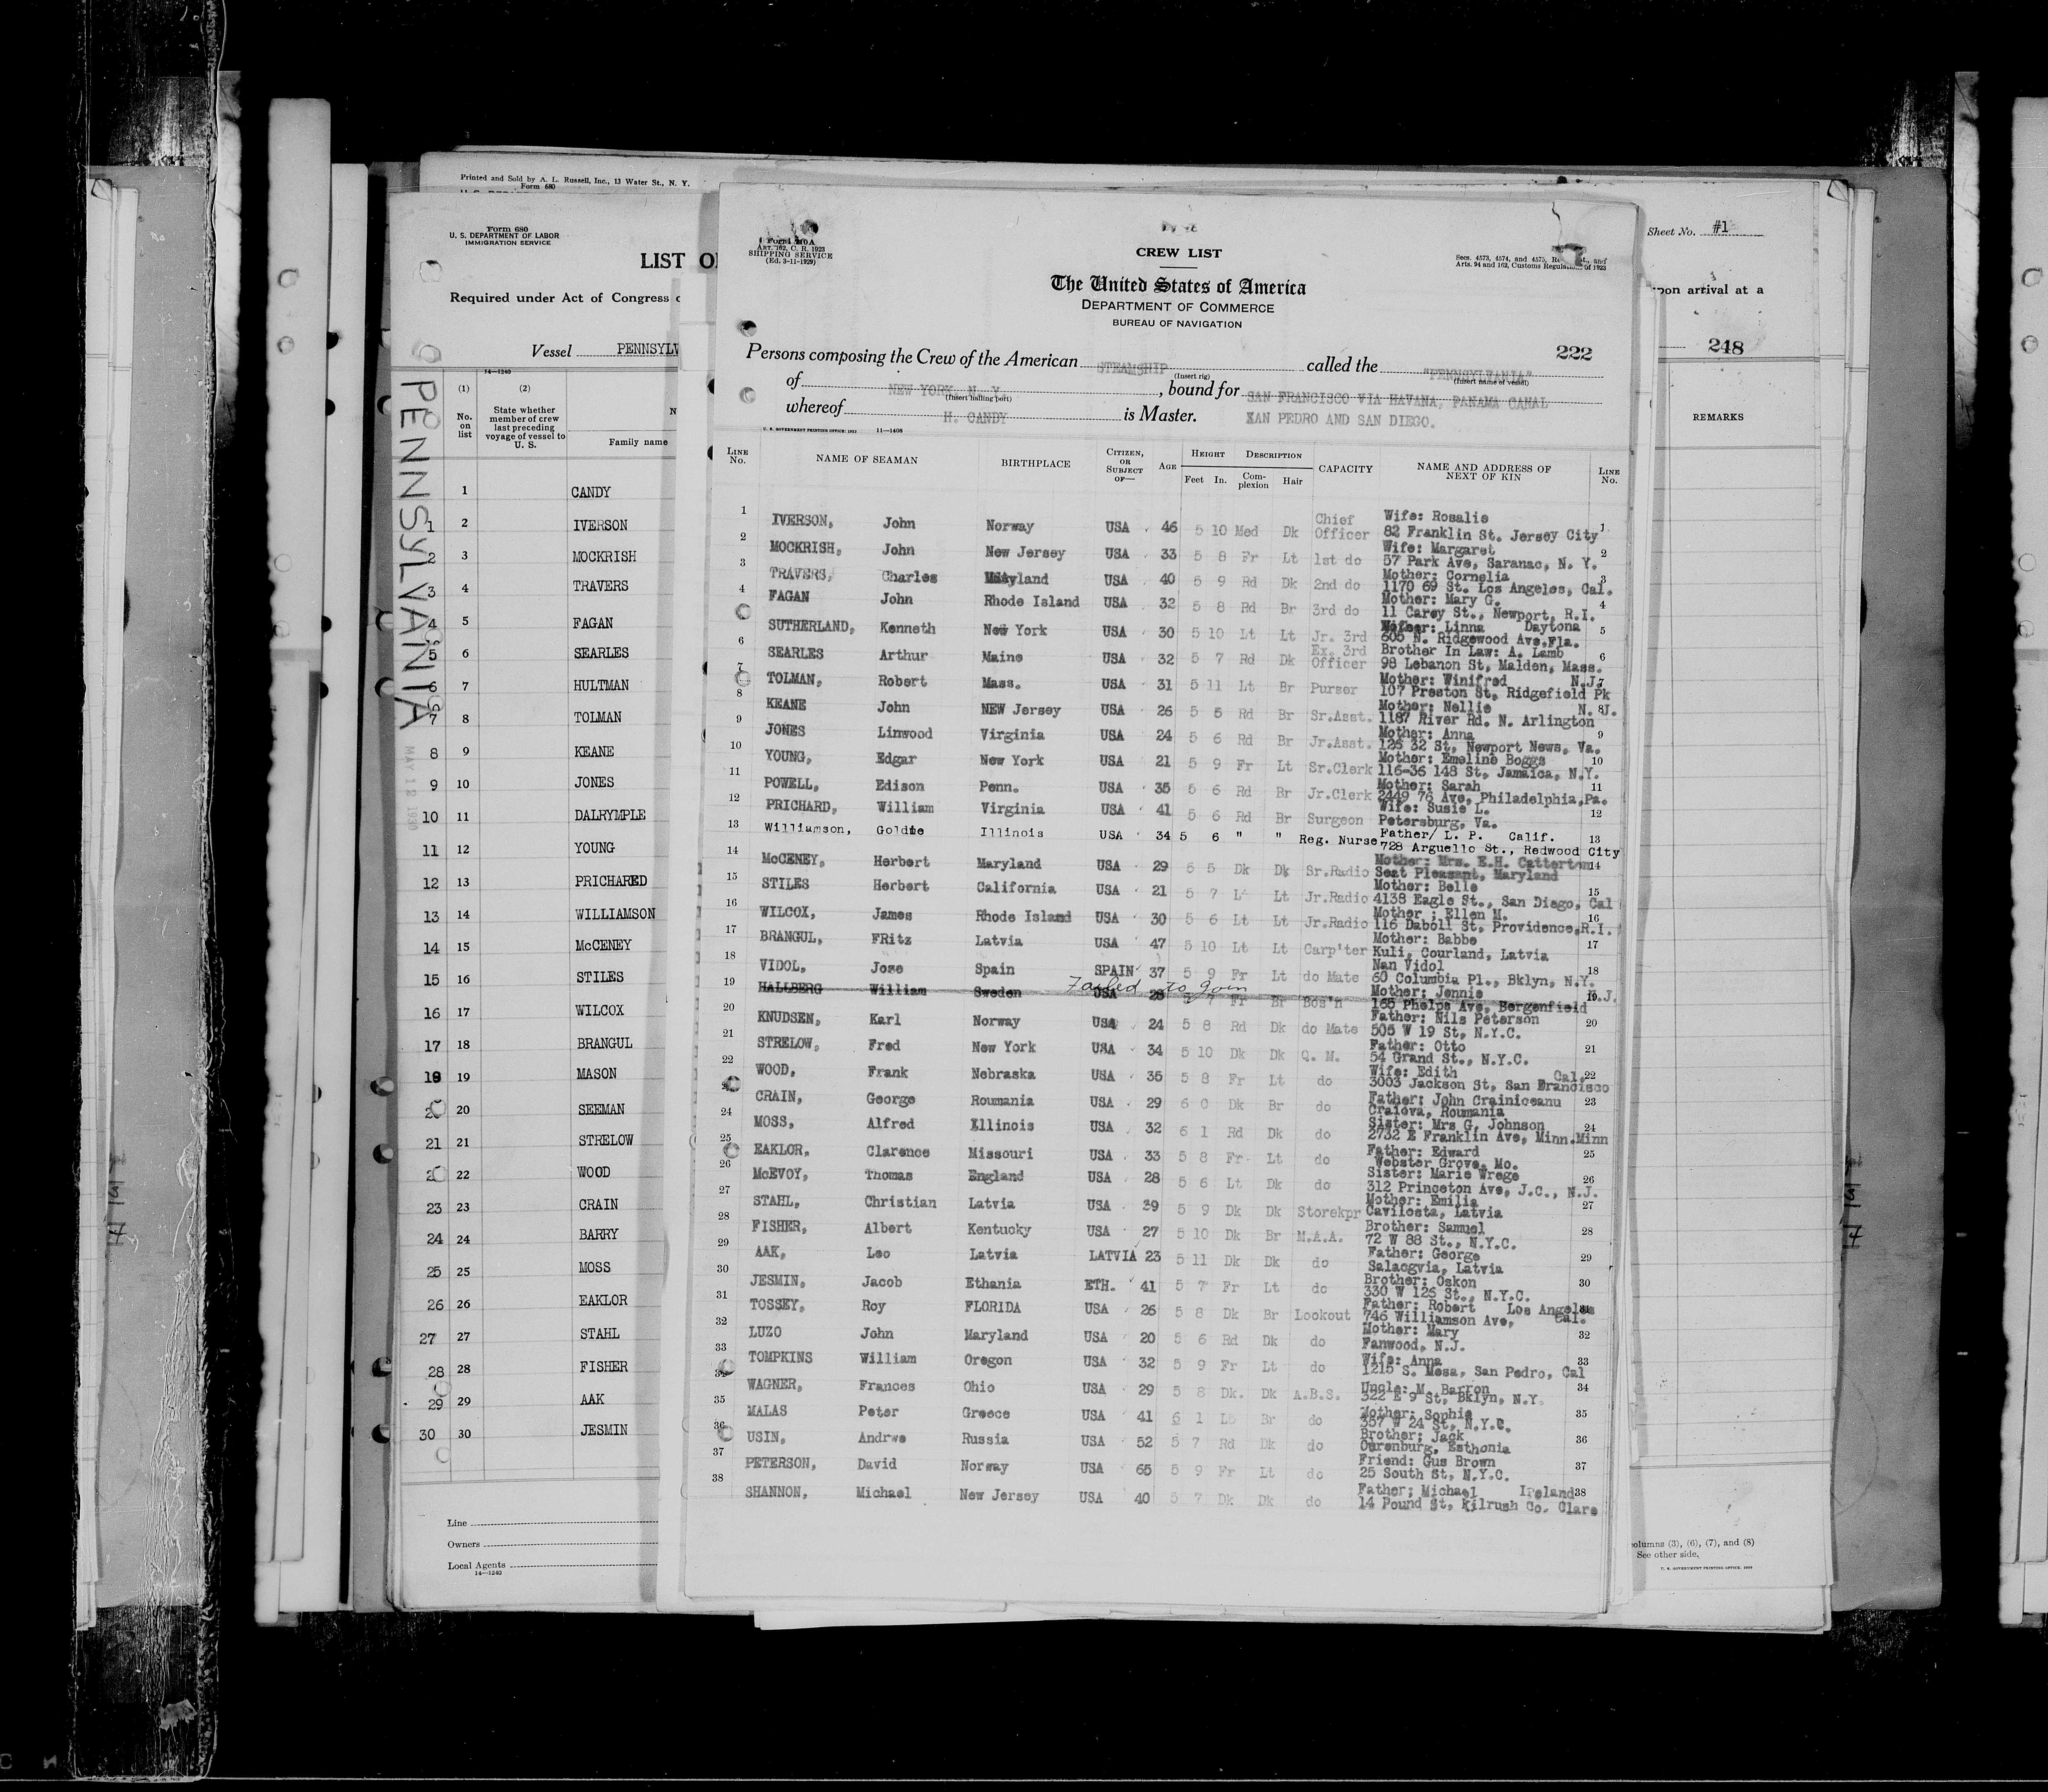 Printed and Sold by A. L. Russell, Inc., 13 Water St., N. Y.
Form 680
Form 680
U. S. DEPARTMENT OF LABOR
IMMIGRATION SERVICE
LIST O
Required under Act of Congress
Vessel PENNSYLV
14—1240
(1) (2)
No. on list
State whether member of crew last preceding voyage of vessel to U. S.
Family name
PENNSYLVANIA
MAY 12 1930
1 CANDY
1 2 IVERSON
2 3 MOCKRISH
3 4 TRAVERS
4 5 FAGAN
5 6 SEARLES
6 7 HULTMAN
7 8 TOLMAN
8 9 KEANE
9 10 JONES
10 11 DALRYMPLE
11 12 YOUNG
12 13 PRICHARED
13 14 WILLIAMSON
14 15 McCENEY
15 16 STILES
16 17 WILCOX
17 18 BRANGUL
19 MASON
20 SEEMAN
21 21 STRELOW
22 WOOD
23 23 CRAIN
24 24 BARRY
25 25 MOSS
26 26 EAKLOR
27 27 STAHL
28 28 FISHER
29 29 AAK
30 30 JESMIN
Line
Owners
Local Agents
14—1240
ART. 162, C. R. 1923
SHIPPING SERVICE
(Ed. 3-11-1929)
CREW LIST
Secs. 4573, 4574, and 4575, and
Arts. 94 and 162, Customs Regulations of 1923
The United States of America
DEPARTMENT OF COMMERCE
BUREAU OF NAVIGATION
222
Persons composing the Crew of the American STEAMSHIP called the "PENNSYLVANIA"
(Insert rig) (Insert name of vessel)
of NEW YORK N. Y., bound for SAN FRANCISCO VIA HAVANA, PANAMA CANAL
(Insert hailing port)
whereof H. CANDY is Master. XAN PEDRO AND SAN DIEGO.
U. S. GOVERNMENT PRINTING OFFICE: 11—1408
LINE No. NAME OF SEAMAN BIRTHPLACE CITIZEN, OR SUBJECT OF— AGE HEIGHT Feet In. DESCRIPTION Complexion Hair CAPACITY NAME AND ADDRESS OF NEXT OF KIN LINE No.
1 IVERSON, John Norway USA 46 5 10 Med Dk Chief Officer Wife: Rosalie 82 Franklin St. Jersey City 1
2 MOCKRISH, John New Jersey USA 33 5 8 Fr Lt 1st do Wife: Margaret 57 Park Ave, Saranac, N. Y. 2
3 TRAVERS, Charles Maryland USA 40 5 9 Rd Dk 2nd do Mother: Cornelia 1170 69 St. Los Angeles, Cal. 3
4 FAGAN John Rhode Island USA 32 5 8 Rd Br 3rd do Mother: Mary G. 11 Carey St., Newport, R.I. 4
SUTHERLAND, Kenneth New York USA 30 5 10 Lt Lt Jr. 3rd Linna Daytona 605 N. Ridgewood Ave. Fla. 5
6 SEARLES Arthur Maine USA 32 5 7 Rd Dk Ex. 3rd Officer Brother In Law: A. Lamb 98 Lebanon St, Malden, Mass. 6
7 TOLMAN, Robert Mass. USA 31 5 11 Lt Br Purser Mother: Winifred N.J. 107 Preston St, Ridgefield Pk 7
8 KEANE John NEW Jersey USA 26 5 5 Rd Br Sr.Asst. Mother: Nellie N. J. 1187 River Rd. N. Arlington 8
9 JONES Linwood Virginia USA 24 5 6 Rd Br Jr.Asst. Mother: Anna 126 32 St, Newport News, Va. 9
10 YOUNG, Edgar New York USA 21 5 9 Fr Lt Sr.Clerk Mother: Emeline Boggs 116-36 148 St, Jamaica, N.Y. 10
11 POWELL, Edison Penn. USA 35 5 6 Rd Br Jr.Clerk Mother: Sarah 2449 76 Ave, Philadelphia, Pa. 11
12 PRICHARD, William Virginia USA 41 5 6 Rd Br Surgeon Wife: Susie L. Petersburg, Va. 12
13 Williamson, Goldie Illinois USA 34 5 6 " " Reg. Nurse Father/ L. P. Calif. 728 Arguello St., Redwood City 13
14 McCENEY, Herbert Maryland USA 29 6 5 Dk Dk Sr.Radio Mother: Mrs. E.H. Catterton Seat Pleasant, Maryland 14
15 STILES Herbert California USA 21 5 7 Lt Lt Jr.Radio Mother: Belle 4138 Eagle St., San Diego, Cal 15
16 WILCOX, James Rhode Island USA 30 5 6 Lt Lt Jr.Radio Mother ; Ellen M. 116 Daboll St, Providence, R.I. 16
17 BRANGUL, FRitz Latvia USA 47 5 10 Lt Lt Carp'ter Mother: Babbe Kuli, Courland, Latvia 17
18 VIDOL, Jose Spain SPAIN 37 5 9 Fr Lt do Mate Nan Vidol 60 Columbia Pl., Bklyn, N.Y. 18
Failed to Join
19 HALLBERG William Sweden USA 28 5 7 Fr Br Bos'n Mother: Jennie N.J. 165 Phelps Ave, Bergenfield 19
20 KNUDSEN, Karl Norway USA 24 5 8 Rd Dk do Mate Father: Nils Peterson 505 W 19 St, N.Y.C. 20
21 STRELOW, Fred New York USA 34 5 10 Dk Dk Q. M. Father: Otto 54 Grand St., N.Y.C. 21
22 WOOD, Frank Nebraska USA 35 5 8 Fr Lt do Wife: Edith Cal. 3003 Jackson St, San Francisco 22
CRAIN, George Roumania USA 29 6 0 Dk Br do Father: John Crainiceanu Craiova, Roumania 23
24 MOSS, Alfred Illinois USA 32 6 1 Rd Dk do Sister: Mrs G. Johnson 2732 E Franklin Ave, Minn.Minn 24
25 EAKLOR, Clarence Missouri USA 33 5 8 Fr Lt do Father: Edward Webster Grove, Mo. 25
26 McEVOY, Thomas England USA 28 5 6 Lt Dk do Sister: Marie Wrege 312 Princeton Ave, J.C., N.J. 26
27 STAHL, Christian Latvia USA 39 5 9 Dk Dk Storekpr Mother: Emilia Cavilosta, Latvia 27
28 FISHER, Albert Kentucky USA 27 5 10 Dk Br M.A.A. Brother: Samuel 72 W 88 St., N.Y.C. 28
29 AAK, Leo Latvia LATVIA 23 5 11 Dk Dk do Father: George Salacgvia, Latvia 29
30 JESMIN, Jacob Ethania ETH. 41 5 7 Fr Lt do Brother: Oskon 330 W 125 St., N.Y.C. 30
31 TOSSEY, Roy FLORIDA USA 26 5 8 Dk Br Lookout Father: Robert Los Angeles 746 Williamson Ave, Cal. 31
32 LUZO John Maryland USA 20 5 6 Rd Dk do Mother: Mary Fanwood, N.J. 32
33 TOMPKINS William Oregon USA 32 5 9 Fr Lt do Wife: Anna 1215 S. Mesa, San Pedro, Cal 33
WAGNER, Frances Ohio USA 29 5 8 Dk. Dk A.B.S. Uncle: M. Barron 322 E 9 St, Bklyn, N.Y. 34
35 MALAS Peter Greece USA 41 6 1 Lt Br do Mother: Sophie 357 W 24 St, N.Y.C. 35
36 USIN, Andrwe Russia USA 52 5 7 Rd Dk do Brother; Jack Ourenburg, Esthonia 36
37 PETERSON, David Norway USA 65 5 9 Fr Lt do Friend: Gus Brown 25 South St, N.Y.C. 37
38 SHANNON, Michael New Jersey USA 40 5 7 Dk Dk do Father; Michael Ireland 14 Pound St, Kilrush Co. Clare 38
Sheet No. #1
upon arrival at a
248
REMARKS
columns (3), (6), (7), and (8)
See other side.
U. S. GOVERNMENT PRINTING OFFICE